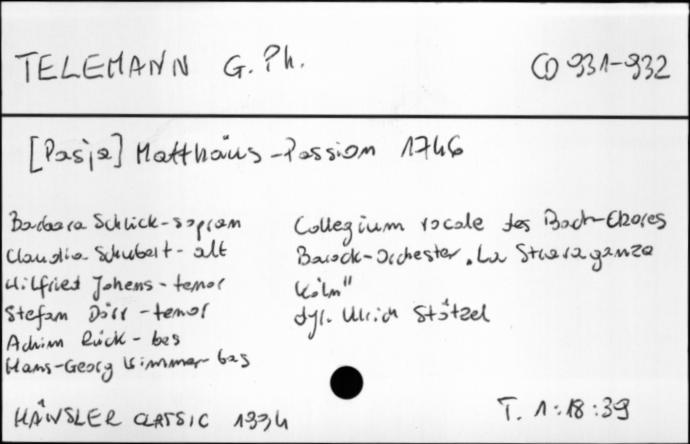 TELEMANN G. Ph. CD 931-932
[Pasja] Matthäus-Passion 1746
Barbara Schlick-sopran
Claudia Schubert-alt
Wilfried Johens-tenor
Stefan Dörr-tenor
Achim Rück-bas
Hans-Georg Wimmer-bas
Collegium vocale des Bach-Chores
Barock-Orchester „La Stravaganza
Köln"
dyr. Ulrich Stötzel
HÄNSLER CLASSIC 1994
T. 1:18:39